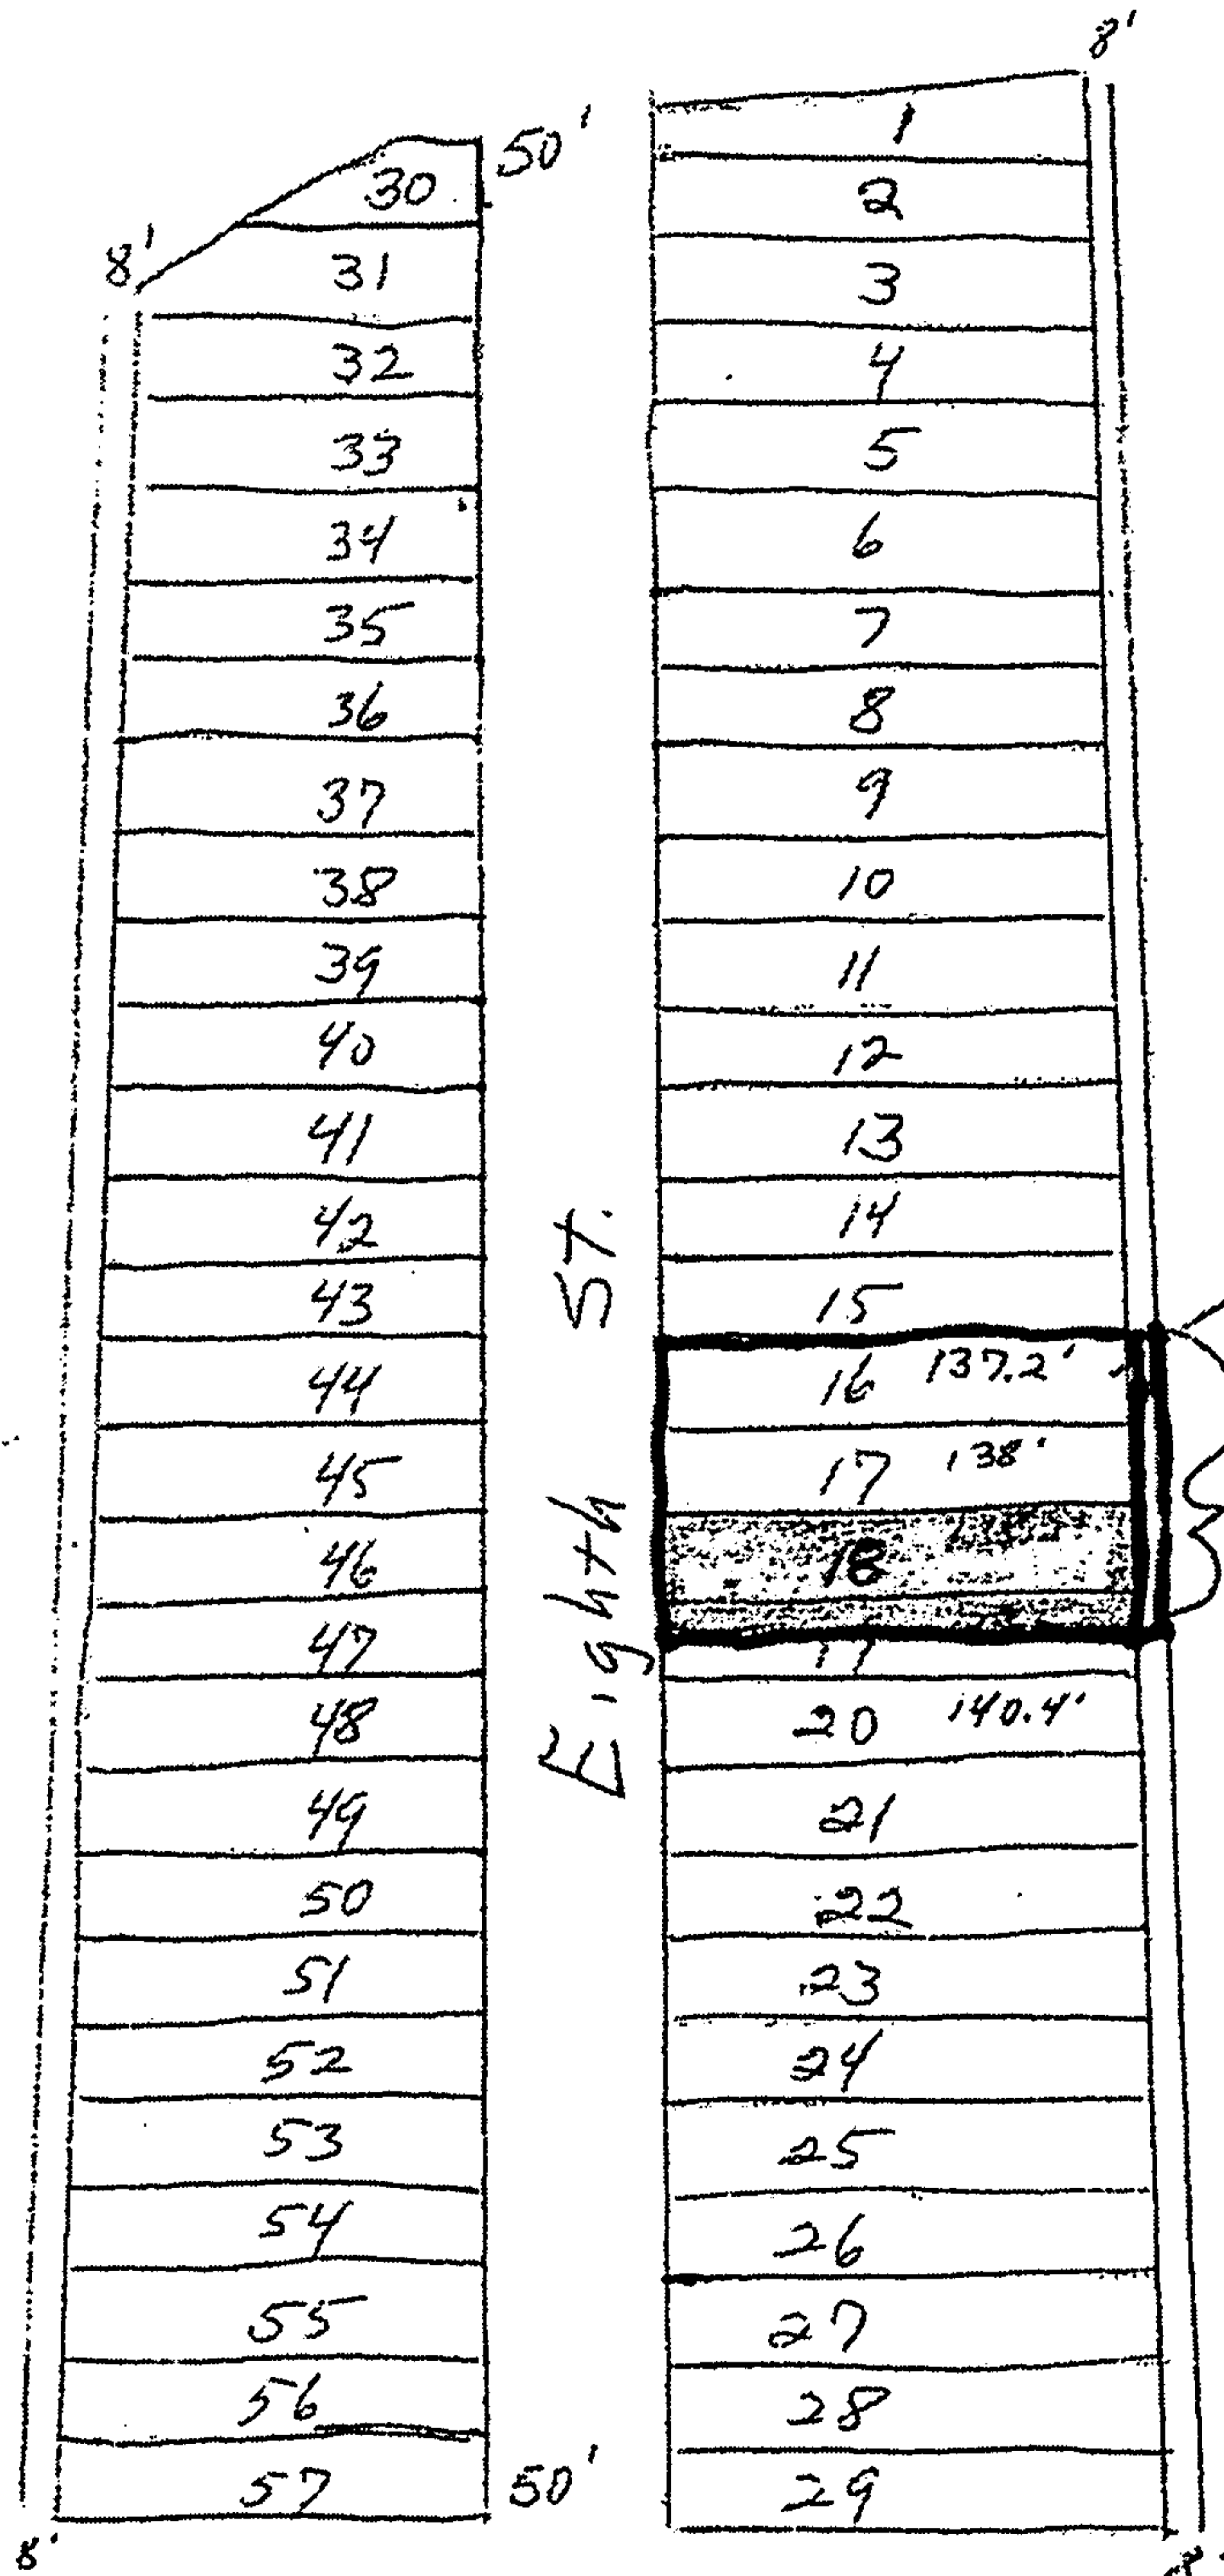 8'
50'
30
8'
31
32
33
34
35
36
37
38
39
40
41
42
43
44
45
46
47
48
49
50
51
52
53
54
55
56
57
50'
8'
Eighth St.
8'
1
2
3
4
5
6
7
8
9
10
11
12
13
14
15
16 137.2'
17 138'
18
20 140.4'
21
22
23
24
25
26
27
28
29
8'